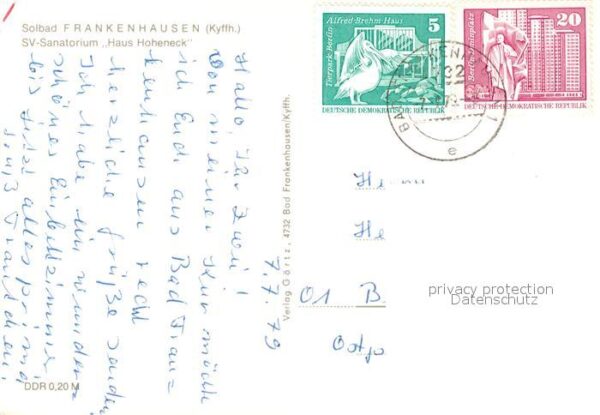 Solbad FRANKENHAUSEN (Kyffh.)
SV-Sanatorium „Haus Hoheneck"
Alfred-Brehm-Haus
Tierpark Berlin
5
DEUTSCHE DEMOKRATISCHE REPUBLIK
Berlin-Leninplatz
20
DEUTSCHE DEMOKRATISCHE REPUBLIK
e
7.7.79
Hallo, Ihr Zwei!
Von meiner Kur möchte
ich Euch aus Bad Franz
kenhausen recht
herzliche Grüße senden
Ich habe ein wunder
schönes Einbettzimmer
bis jetzt alles prima
Gruß
Verlag Görtz, 4732 Bad Frankenhausen/Kyffh.
He
He
O1 B.
privacy protection
Datenschutz
DDR 0,20 M